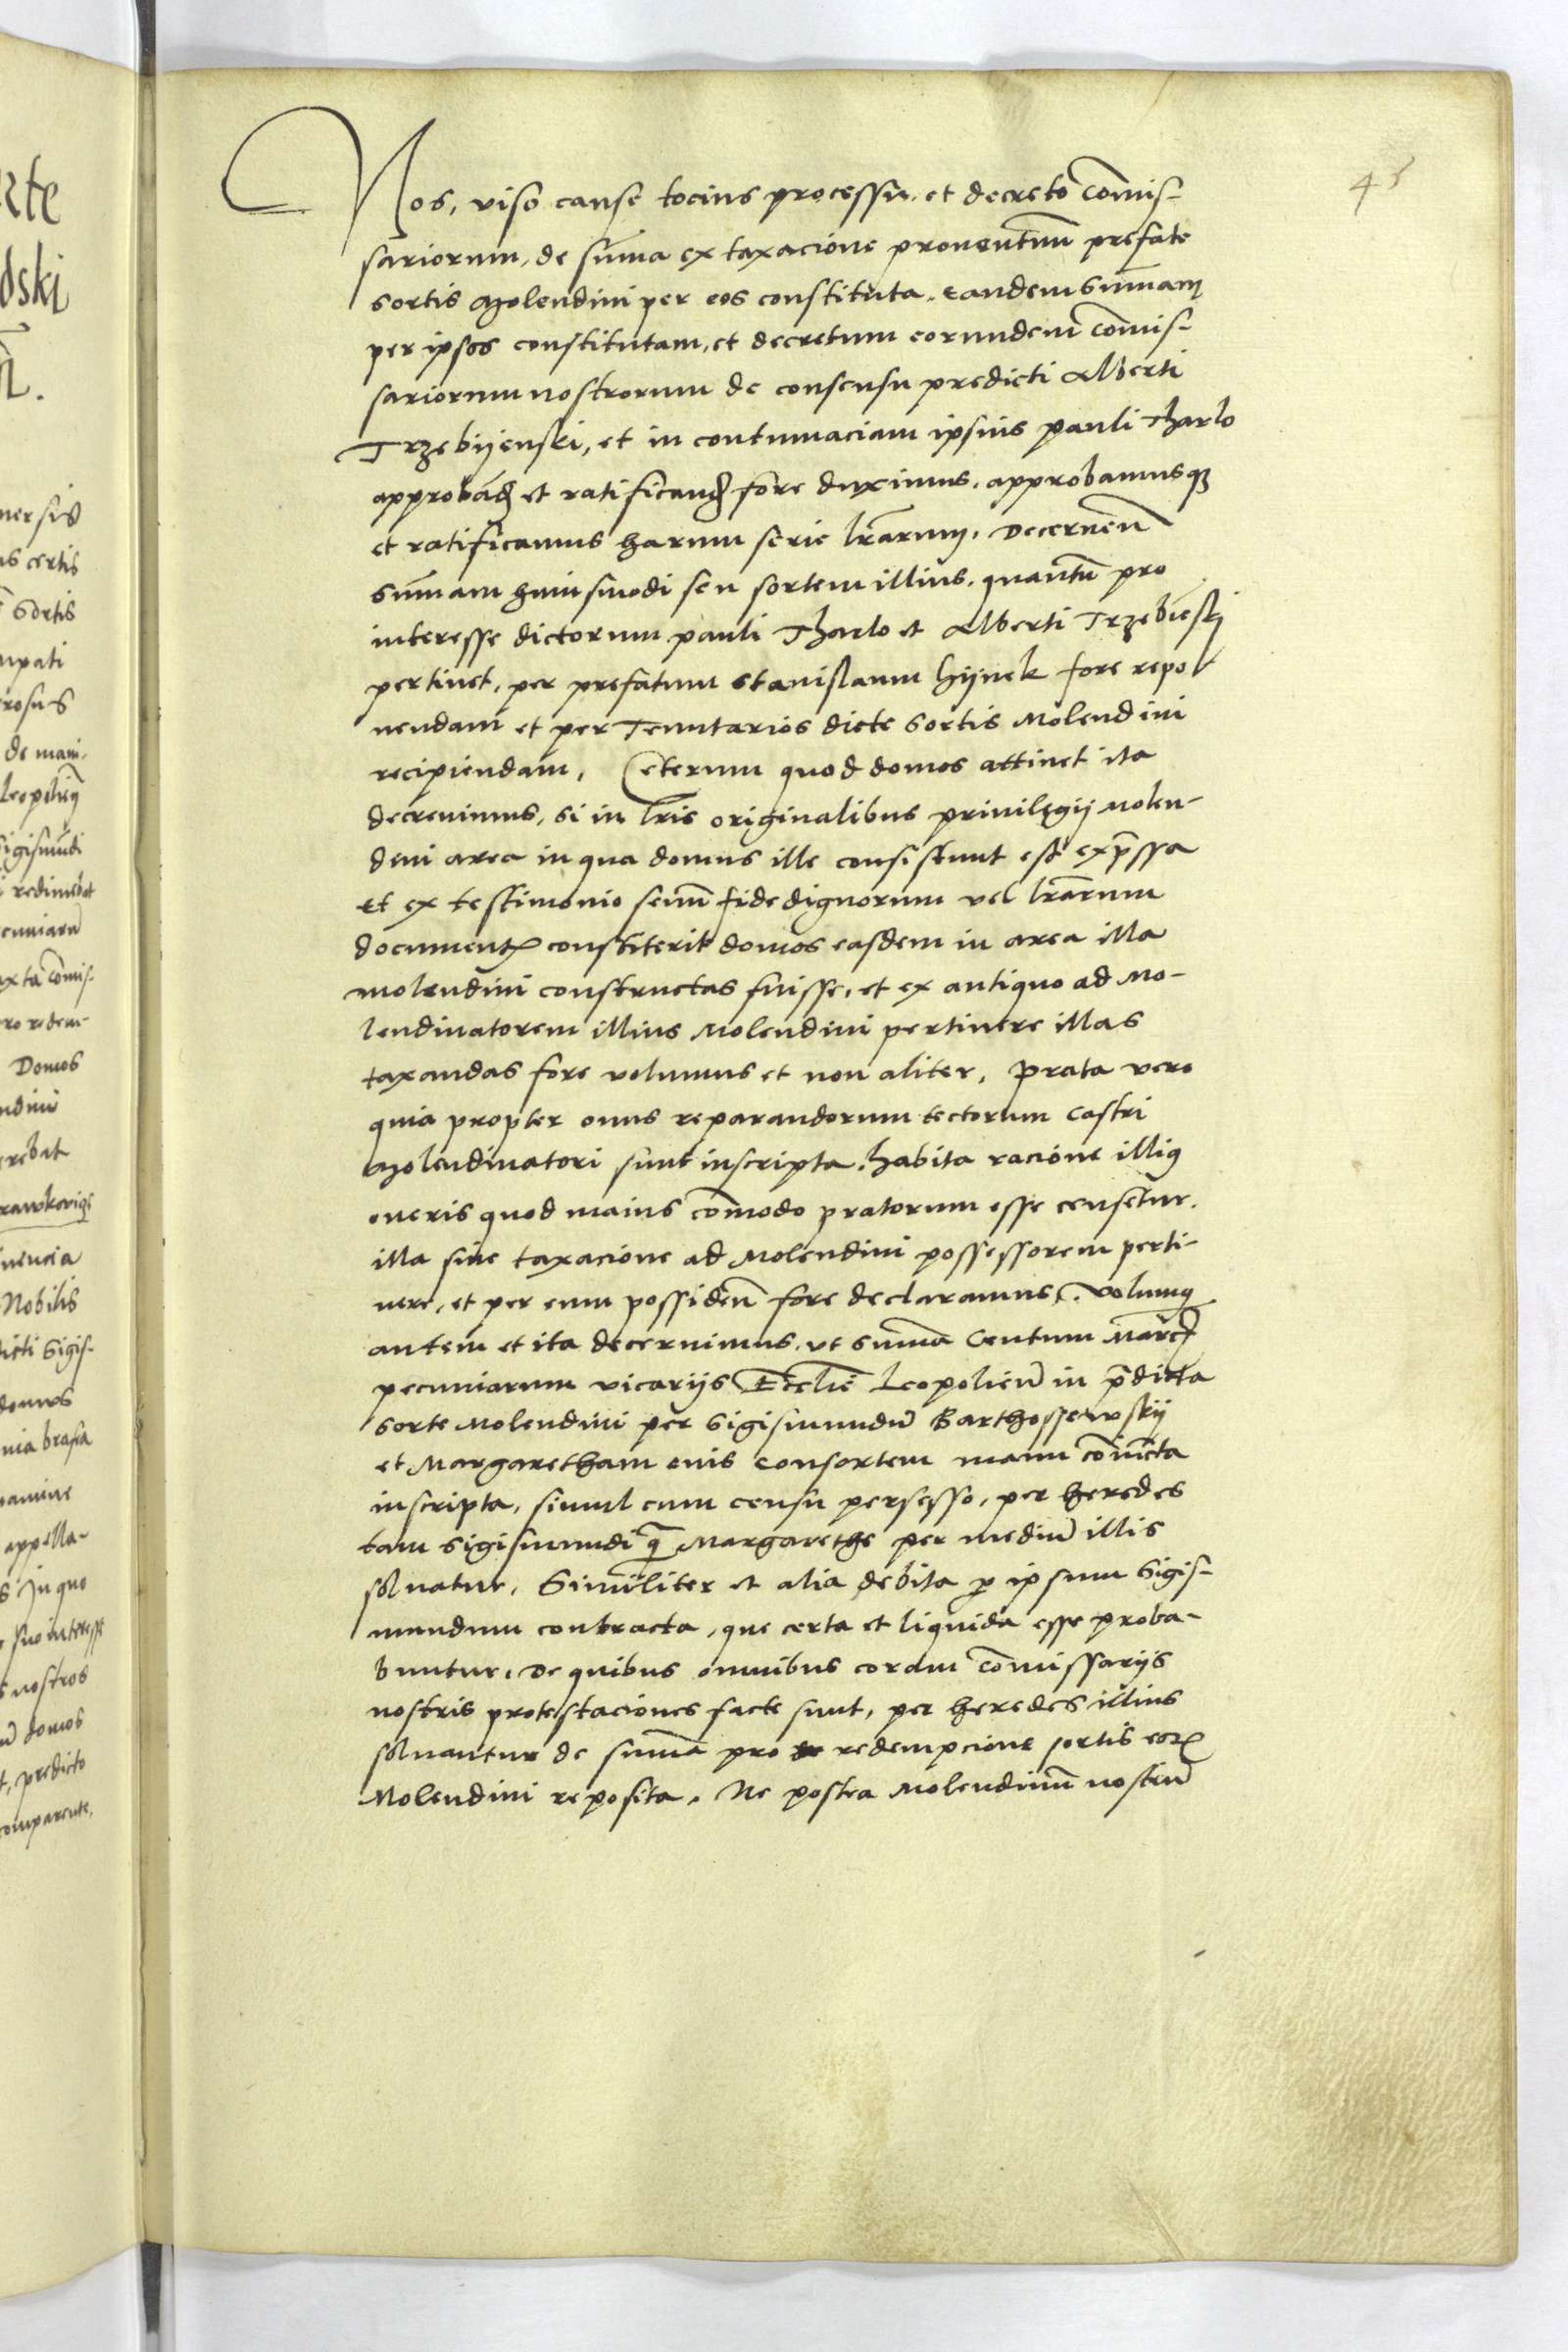 45
Nos, viso cause tocius processu, et decreto com̄is-
sariorum, de sum̄a ex taxacione prouentuum prefate
sortis Molendini per eos constituta, eandem sum̄am
per ipsos constitutam, et decretum eorundem com̄is-
sariorum nostrorum de consensu predicti Alberti
Trzebijenski, et in contumaciam ipsius pauli Tharlo
approband et ratificand fore duximus, approbamusq
et ratificamus harum serie lr̄arum, Decernen̄
sum̄am huiusmodi seu sortem illius, quantum pro
interesse dictorum pauli Tharlo et Alberti Trzebieskj
pertinet, per prefatum Stanislaum hijnek fore repo-
nendam et per Tenutarios dicte sortis Molendini
recipiendam, Ceterum quod domos attinet ita
decreuimus, si in lr̄is originalibus priuilęgij Molen-
dini area in qua domus ille consistunt est exp̄ssa
et ex testimonio senum̄ fide dignorum vel lr̄arum
document constiterit domos easdem in area illa
molendini constructas fuisse, et ex antiquo ad Mo-
lendinatorem illius Molendini pertinere illas
taxandas fore volumus et non aliter, Prata vero
quia propter onus reparandorum tectorum Castri
Molendinatori sunt inscripta, habita racione illi9
oneris quod maius com̄odo pratorum esse censetur,
illa sine taxacione ad Molendini possessorem perti-
nere, et per eum possiden̄ fore declaramus, Volum9
autem et ita decernimus, vt sum̄a Centum Marc
pecuniarum vicarijs Eccl̄ie Leopolien̄ in p̄dicta
sorte Molendini per Sigismundum̄ Barthossewskij
et Margaretham euis consortem manu coniūcta
inscripta, simul cum censu persesso, per heredes
tam Sigismundi q̄ Margarethe per mediū illis
soluatur, Similiter et alia debita p ipsum Sigis-
mundum contracta, que certa et liquida esse proba-
buntur, de quibus omnibus coram com̄issarijs
nostris protestaciones facte sunt, per heredes illius
soluantur de sum̄a pro redempcione sortis eor
Molendini reposita, Ne postea Molendinum̄ nostrū